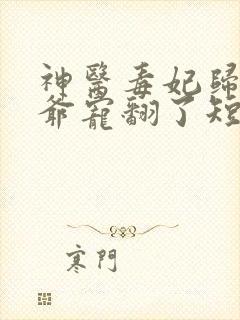 神醫毒妃歸
爺寵翻了短
寒門